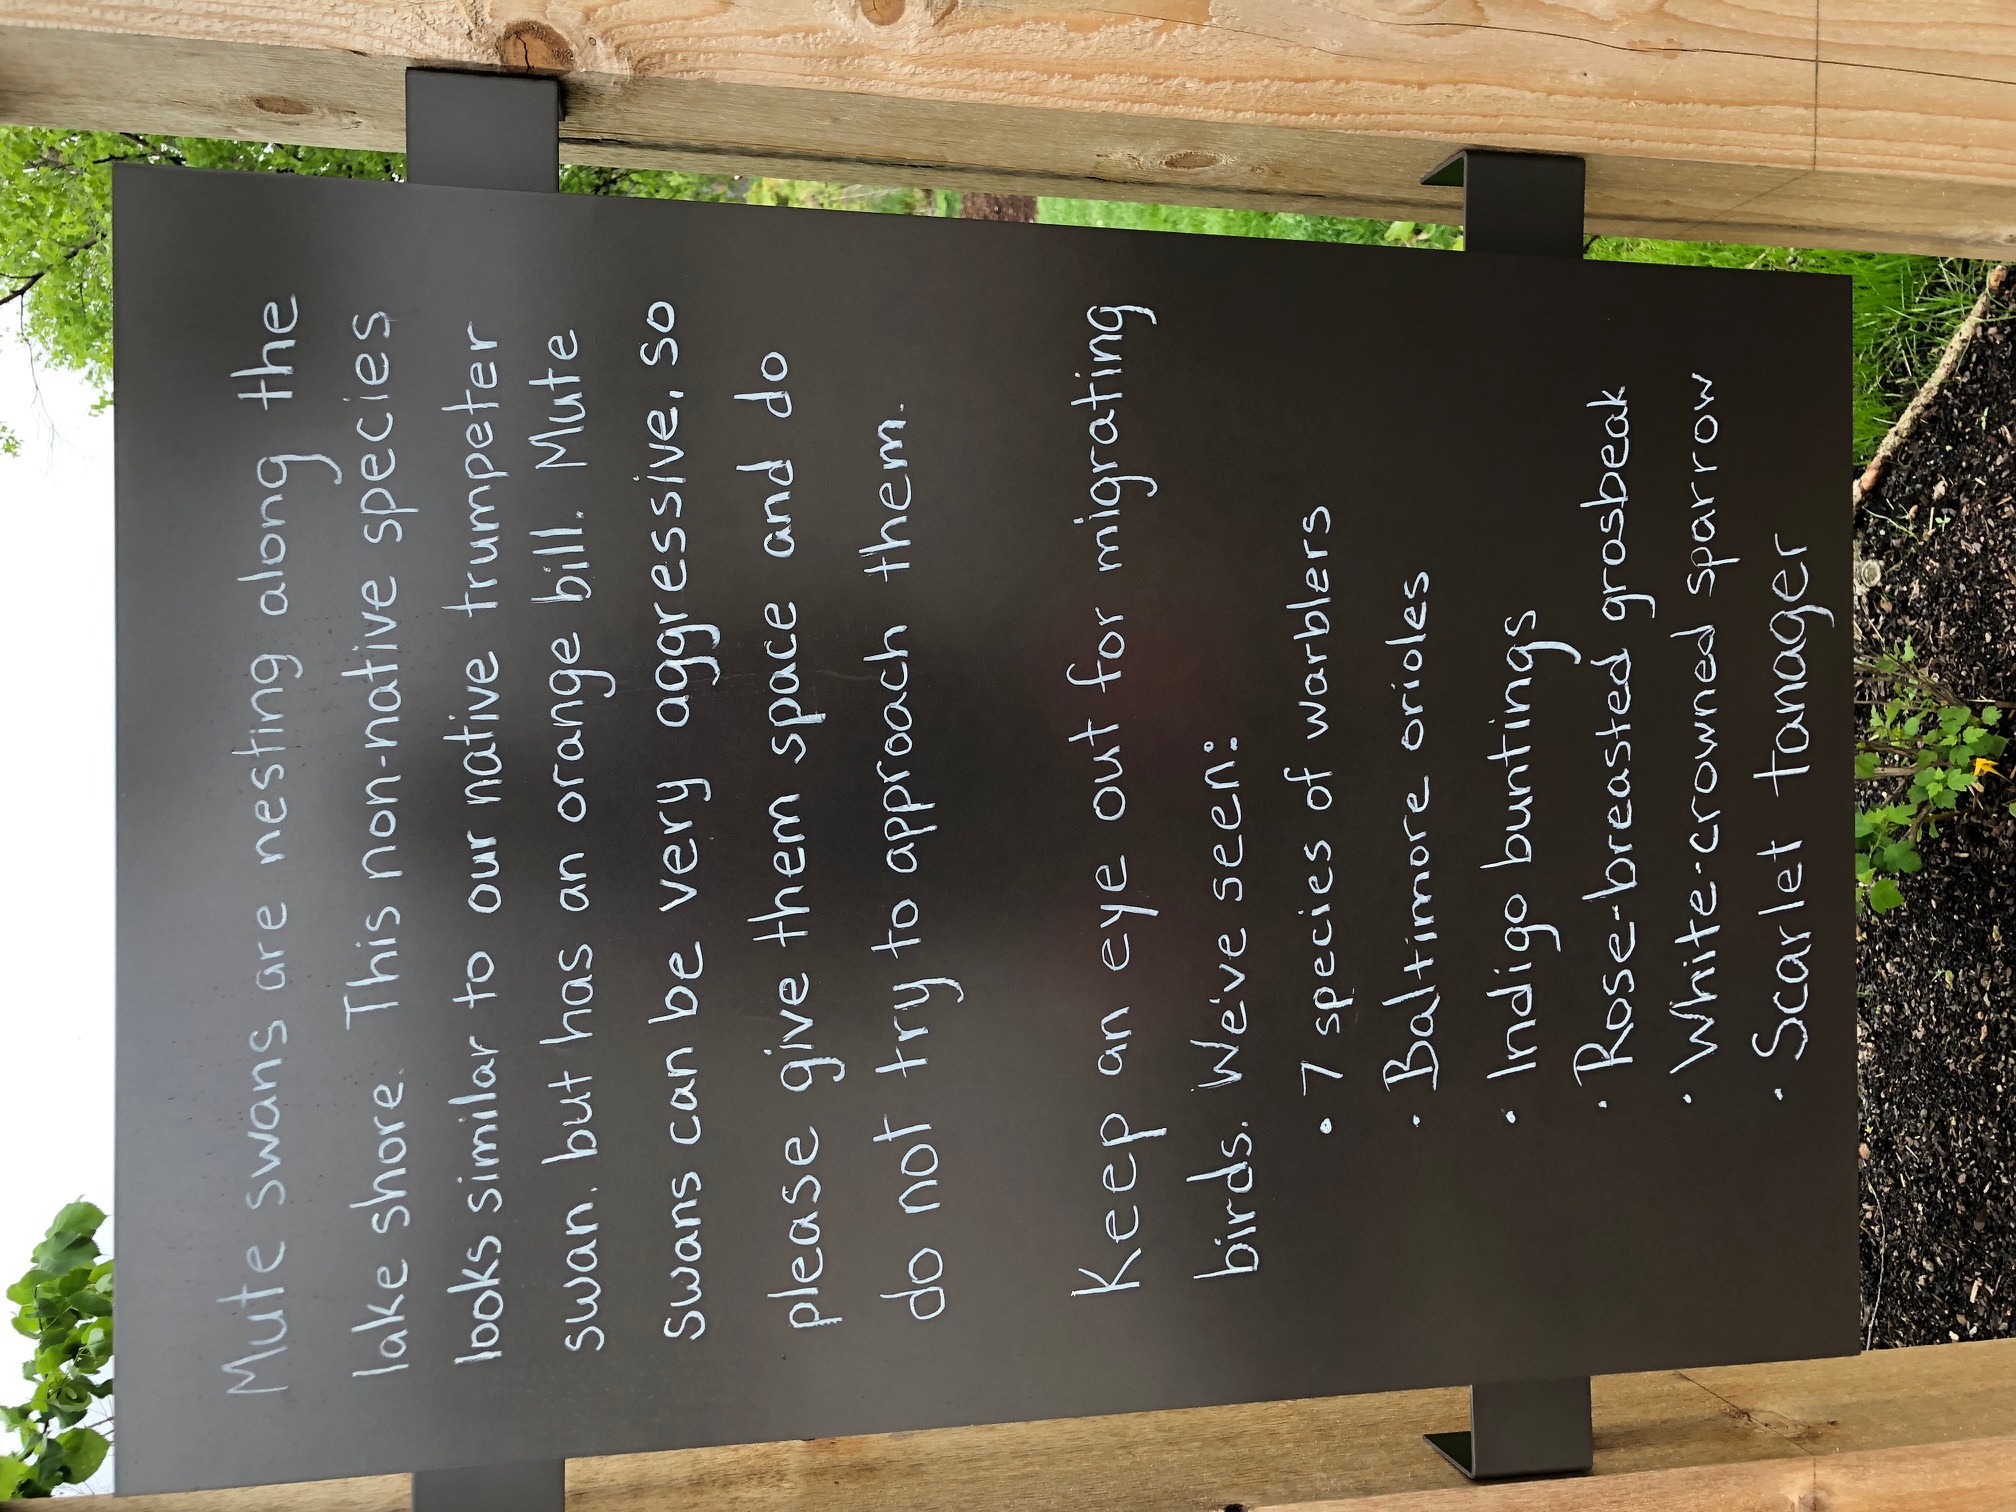 Mute swans are nesting along the
lake shore. This non-native species
looks similar to our native trumpeter
swan, but has an orange bill. Mute
swans can be very aggressive, so
please give them space and do
do not try to approach them.
Keep an eye out for migrating
birds. We've seen:
• 7 species of warblers
• Baltimore orioles
• Indigo buntings
• Rose-breasted grosbeak
• White-crowned sparrow
• Scarlet tanager